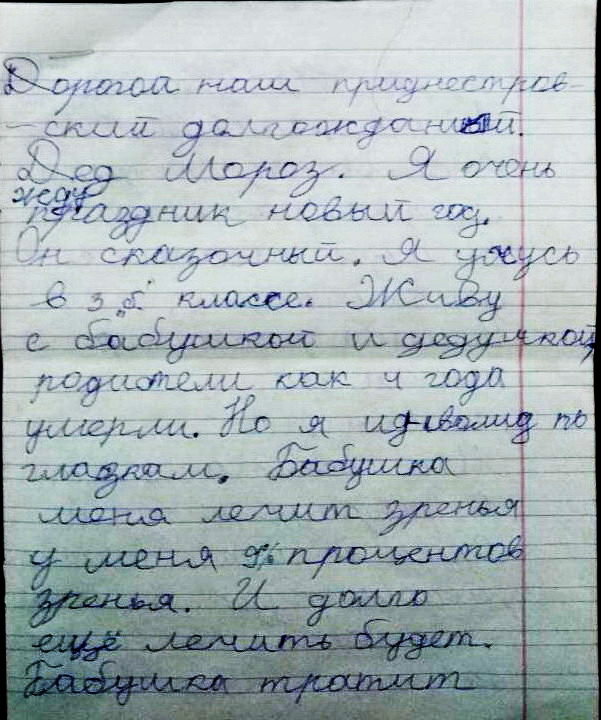 Дорогой наш приднестров-
-ский долгожданный
Дед Мороз. Я очень
жду
праздник новый год.
Он сказочный. Я учусь
в 3 "б" классе. Живу
с бабушкой и дедушкой,
родители как 4 года
умерли. Но я инвалид по
глазкам. Бабушка
меня лечит зренья
у меня процентов
зренья. И долго
ещё лечить будет.
Бабушка тратит